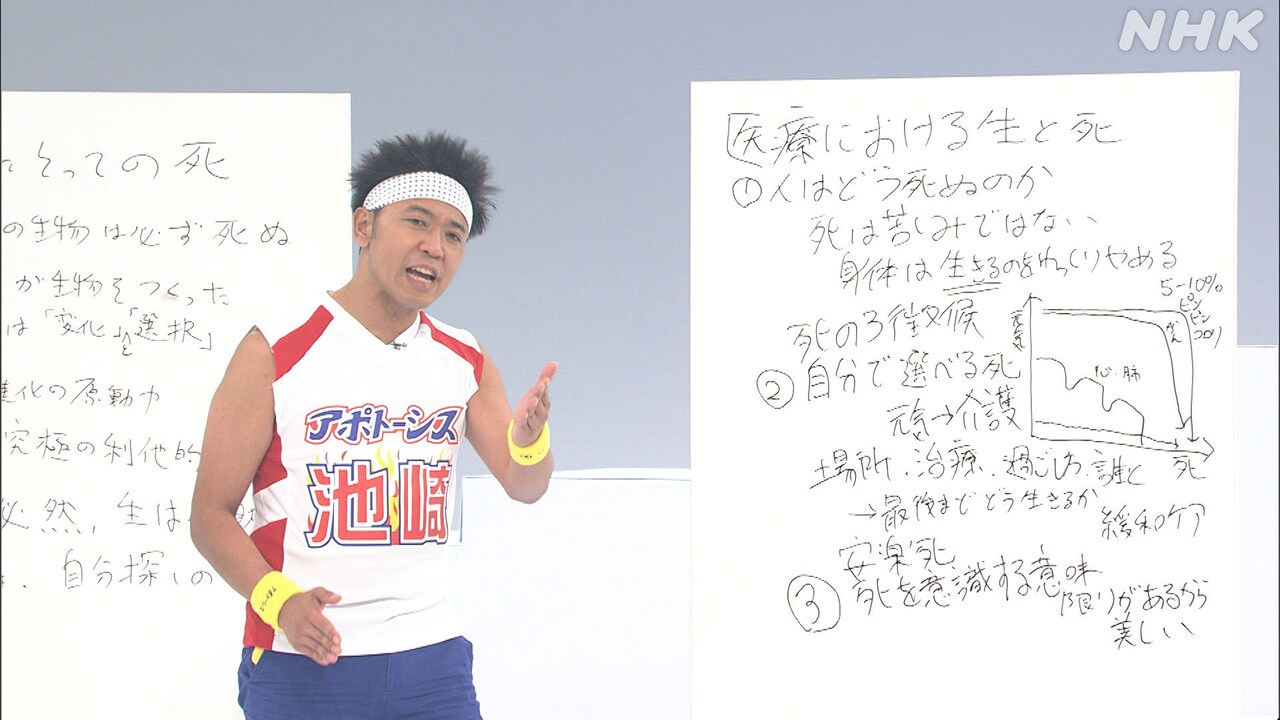 NHK
とっての死
の生物は必ず死ぬ
が生物をつくった
は「変化」と「選択」
進化の原動力
究極の利他的
必然、生は
自分探しの
アポトーシス
池崎
医療における生と死
①人はどう死ぬのか
死は苦しみではない
身体は生きるのをゆっくりやめる
死の3徴候
5-10%
ピンピンコロリ
元気
がん
心・肺
死
②自分で選べる死
元気→介護
場所、治療、過ごし方、誰と
→最後までどう生きるか
緩和ケア
安楽死
③死を意識する意味
限りがあるから
美しい